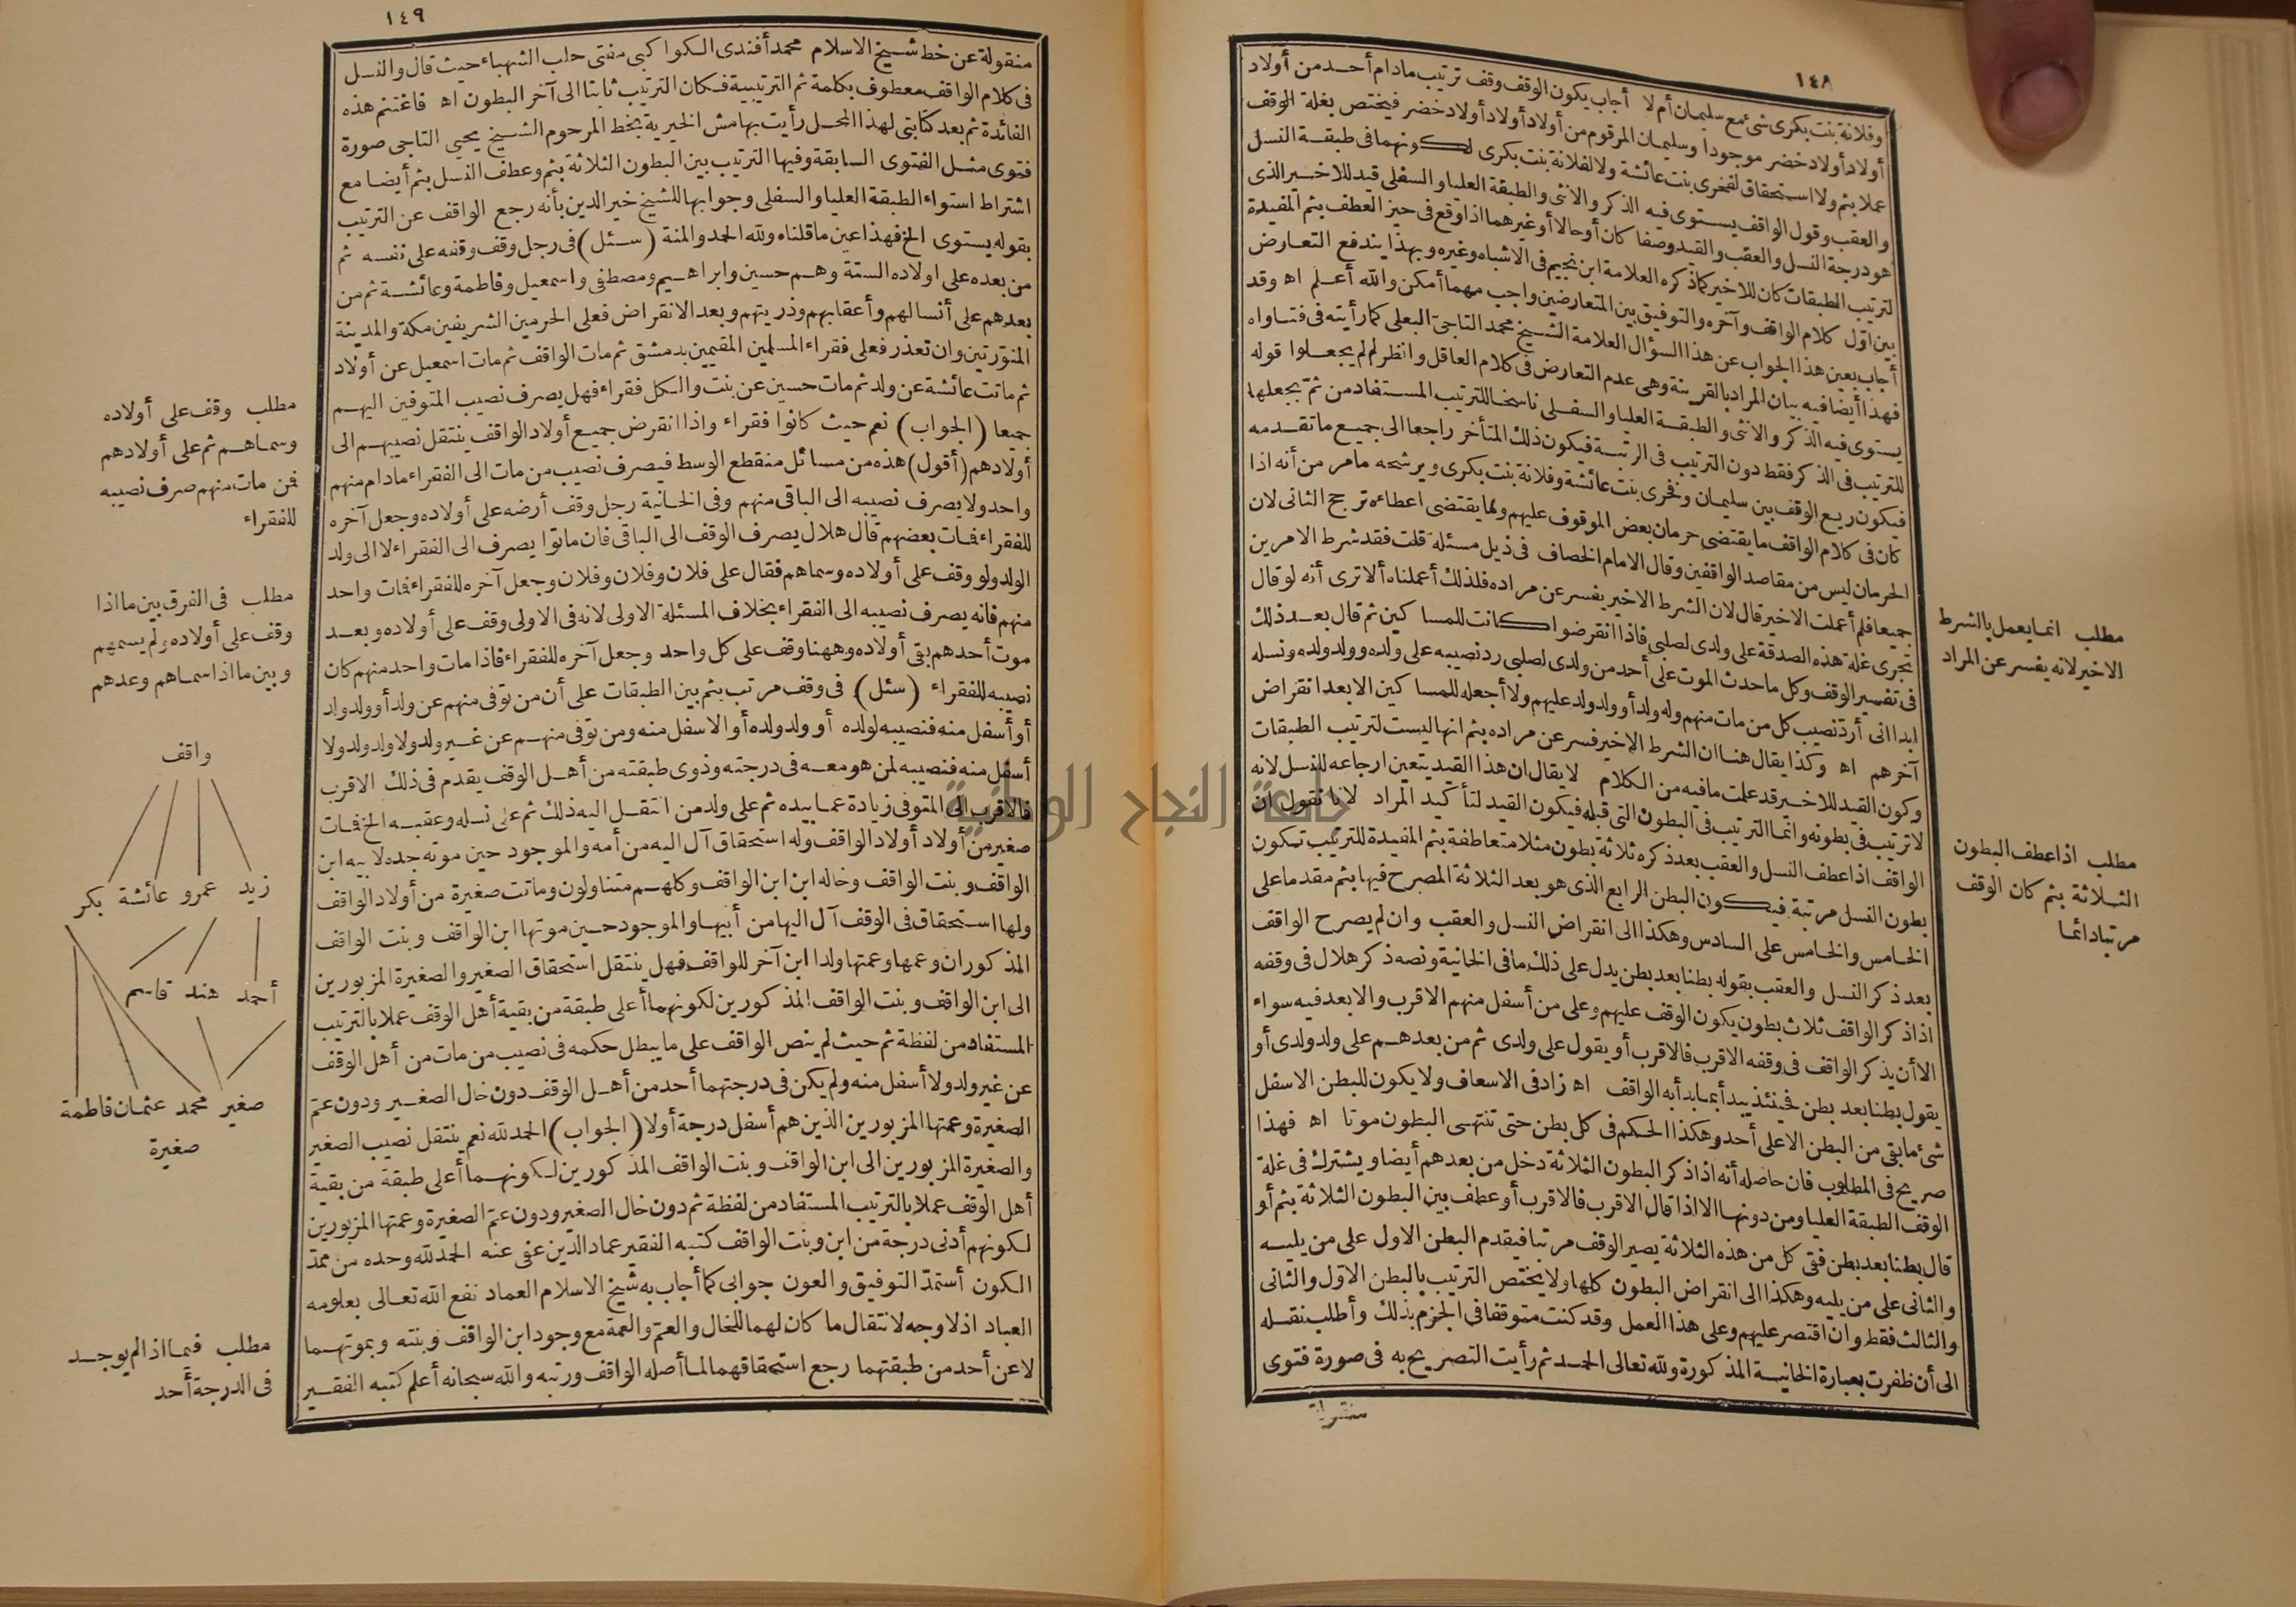 ١٤٨
وفلانة بنت بكرى شئ مع سليمان أم لا أجاب يكون الوقف وقف ترتيب مادام أحد من أولاد
أولاد أولاد خضر موجودا وسليمان المرقوم من أولاد أولاد أولاد خضر فيختص بغلة الوقف
عملا بثم ولا استحقاق لفخرى بنت عائشة ولا لفلانة بنت بكرى لكونهما فى طبقة النسل
والعقب وقول الواقف يستوى فيه الذكر والانثى والطبقة العليا والسفلى قيد للاخير الذى
هو درجة النسل والعقب والقيد وصفا كان أو حالا أو غيرهما اذا وقع فى حيز العطف بثم المفيدة
لترتيب الطبقات كان للاخير كما ذكره العلامة ابن نجيم فى الاشباه وغيره وبهذا يندفع التعارض
بين اوّل كلام الواقف وآخره والتوفيق بين المتعارضين واجب مهما أمكن والله أعلم اه وقد
أجاب بعين هذا الجواب عن هذا السؤال العلامة الشيخ محمد التاجى البعلى كما رأيته فى فتاواه
فهذا أيضا فيه بيان المراد بالقرينة وهى عدم التعارض فى كلام العاقل وانظر لم لم يجعلوا قوله
يستوى فيه الذكر والانثى والطبقة العليا والسفلى ناسخا للترتيب المستفاد من ثم بجعلها
للترتيب فى الذكر فقط دون الترتيب فى الرتبة فيكون ذلك المتأخر راجعا الى جميع ما تقدمه
فيكون ريع الوقف بين سليمان وفخرى بنت عائشة وفلانة بنت بكرى ويرشحه مامر من أنه اذا
كان فى كلام الواقف ما يقتضى حرمان بعض الموقوف عليهم وما يقتضى اعطاءه ترجح الثانى لان
الحرمان ليس من مقاصد الواقفين وقال الامام الخصاف فى ذيل مسئلة قلت فقد شرط الامرين
جميعا فلم أعملت الاخير قال لان الشرط الاخير يفسر عن مراده فلذلك أعملناه ألا ترى أنه لو قال
تجرى غلة هذه الصدقة على ولدى لصلبى فاذا انقرضوا كانت للمساكين ثم قال بعد ذلك
فى تفسير الوقف وكل ما حدث الموت على أحد من ولدى لصلبى رد نصيبه على ولده وولد ولده ونسله
ابدا انى أردّ نصيب كل من مات منهم وله ولد أو ولد ولد عليهم ولا أجعله للمساكين الا بعد انقراض
آخرهم اه وكذا يقال هنا ان الشرط الاخير فسر عن مراده بثم انها ليست لترتيب الطبقات
وكون القيد للاخير قد علمت مافيه من الكلام لا يقال ان هذا القيد يتعين ارجاعه للنسل لانه
لا ترتيب فى بطونه وانما الترتيب فى البطون التى قبله فيكون القيد لتأكيد المراد لانا نقول ان
الواقف اذا عطف النسل والعقب بعد ذكره ثلاثة بطون مثلا متعاطفة بثم المفيدة للترتيب تكون
بطون النسل مرتبة فيكون البطن الرابع الذى هو بعد الثلاثة المصرح فيها بثم مقدما على
الخامس والخامس على السادس وهكذا الى انقراض النسل والعقب وان لم يصرح الواقف
بعد ذكر النسل والعقب بقوله بطنا بعد بطن يدل على ذلك ما فى الخانية ونصه ذكر هلال فى وقفه
اذا ذكر الواقف ثلاث بطون يكون الوقف عليهم وعلى من أسفل منهم الاقرب والابعد فيه سواء
الا أن يذكر الواقف فى وقفه الاقرب فالاقرب أو يقول على ولدى ثم من بعدهم على ولد ولدى أو
يقول بطنا بعد بطن فحينئذ يبدأ بما بدأ به الواقف اه زاد فى الاسعاف ولا يكون للبطن الاسفل
شئ ما بقى من البطن الاعلى أحد وهكذا الحكم فى كل بطن حتى تنتهى البطون موتا اه فهذا
صريح فى المطلوب فان حاصله أنه اذا ذكر البطون الثلاثة دخل من بعدهم أيضا ويشترك فى غلة
الوقف الطبقة العليا ومن دونها الا اذا قال الاقرب فالاقرب أو عطف بين البطون الثلاثة بثم أو
قال بطنا بعد بطن ففى كل من هذه الثلاثة يصير الوقف مرتبا فيقدم البطن الاول على من يليه
والثانى على من يليه وهكذا الى انقراض البطون كلها ولا يختص الترتيب بالبطن الاوّل والثانى
والثالث فقط وان اقتصر عليهم وعلى هذا العمل وقد كنت متوقفا فى الجزم بذلك وأطلب نقله
الى أن ظفرت بعبارة الخانية المذكورة ولله تعالى الحمد ثم رأيت التصريح به فى صورة فتوى
منقولة
مطلب انما يعمل بالشرط
الاخير لانه يفسر عن المراد
مطلب اذا عطف البطون
الثلاثة بثم كان الوقف
مرتبا دائما
١٤٩
منقولة عن خط شيخ الاسلام محمد أفندى الكواكبى مفتى حلب الشهباء حيث قال والنسل
فى كلام الواقف معطوف بكلمة ثم الترتيبية فكان الترتيب ثابتا الى آخر البطون اه فاغتنم هذه
الفائدة ثم بعد كتابتى لهذا المحل رأيت بهامش الخيرية بخط المرحوم الشيخ يحيى التاجى صورة
فتوى مثل الفتوى السابقة وفيها الترتيب بين البطون الثلاثة بثم وعطف النسل بثم أيضا مع
اشتراط استواء الطبقة العليا والسفلى وجوابها للشيخ خير الدين بأنه رجع الواقف عن الترتيب
بقوله يستوى الخ فهذا عين ما قلناه ولله الحمد والمنة (سئل) فى رجل وقف وقفه على نفسه ثم
من بعده على اولاده الستة وهم حسين وابراهيم ومصطفى واسمعيل وفاطمة وعائشة ثم من
بعدهم على أنسالهم وأعقابهم وذريتهم وبعد الانقراض فعلى الحرمين الشريفين مكة والمدينة
المنوّرتين وان تعذر فعلى فقراء المسلمين المقيمين بدمشق ثم مات الواقف ثم مات اسمعيل عن أولاد
ثم ماتت عائشة عن ولد ثم مات حسين عن بنت والكل فقراء فهل يصرف نصيب المتوفين اليهم
جميعا (الجواب) نعم حيث كانوا فقراء واذا انقرض جميع أولاد الواقف ينتقل نصيبهم الى
أولادهم (أقول) هذه من مسائل منقطع الوسط فيصرف نصيب من مات الى الفقراء مادام منهم
واحد ولا يصرف نصيبه الى الباقى منهم وفى الخانية رجل وقف أرضه على أولاده وجعل آخره
للفقراء فمات بعضهم قال هلال يصرف الوقف الى الباقى فان ماتوا يصرف الى الفقراء لا الى ولد
الولد ولو وقف على أولاده وسماهم فقال على فلان وفلان وفلان وجعل آخره للفقراء فمات واحد
منهم فانه يصرف نصيبه الى الفقراء بخلاف المسئلة الاولى لانه فى الاولى وقف على أولاده وبعد
موت أحدهم بقى أولاده وههنا وقف على كل واحد وجعل آخره للفقراء فاذا مات واحد منهم كان
نصيبه للفقراء (سئل) فى وقف مرتب بثم بين الطبقات على أن من توفى منهم عن ولد أو ولد ولد
أو أسفل منه فنصيبه لولده أو ولد ولده أو الاسفل منه ومن توفى منهم عن غير ولد ولا ولد ولد ولا
أسفل منه فنصيبه لمن هو معه فى درجته وذوى طبقته من أهل الوقف يقدم فى ذلك الاقرب
فالاقرب الى المتوفى زيادة عما بيده ثم على ولد من انتقل اليه ذلك ثم على نسله وعقبه الخ فمات
صغير من أولاد أولاد الواقف وله استحقاق آل اليه من أمه والموجود حين موته جده لابيه ابن
الواقف وبنت الواقف وخاله ابن ابن الواقف وكلهم متناولون وماتت صغيرة من أولاد الواقف
ولها استحقاق فى الوقف آل اليها من أبيها والموجود حين موتها ابن الواقف وبنت الواقف
المذكوران وعمها وعمتها ولدا ابن آخر للواقف فهل ينتقل استحقاق الصغير والصغيرة المزبورين
الى ابن الواقف وبنت الواقف المذكورين لكونهما أعلى طبقة من بقية أهل الوقف عملا بالترتيب
المستفاد من لفظة ثم حيث لم ينص الواقف على ما يبطل حكمه فى نصيب من مات من أهل الوقف
عن غير ولد ولا أسفل منه ولم يكن فى درجتهما أحد من أهل الوقف دون خال الصغير ودون عمّ
الصغيرة وعمتها المزبورين الذين هم أسفل درجة أولا (الجواب) الحمد لله نعم ينتقل نصيب الصغير
والصغيرة المزبورين الى ابن الواقف وبنت الواقف المذكورين لكونهما أعلى طبقة من بقية
أهل الوقف عملا بالترتيب المستفاد من لفظة ثم دون خال الصغير ودون عمّ الصغيرة وعمتها المزبورين
لكونهم أدنى درجة من ابن وبنت الواقف كتبه الفقير عماد الدين عفى عنه الحمد لله وحده من ممدّ
الكون أستمدّ التوفيق والعون جوابى كما أجاب به شيخ الاسلام العماد نفع الله تعالى بعلومه
العباد اذ لا وجه لانتقال ما كان لهما للخال والعمّ والعمة مع وجود ابن الواقف وبنته وبموتهما
لا عن أحد من طبقتهما رجع استحقاقهما لما أصله الواقف ورتبه والله سبحانه أعلم كتبه الفقير
مطلب وقف على أولاده
وسماهم ثم على أولادهم
فمن مات منهم صرف نصيبه
للفقراء
مطلب فى الفرق بين ما اذا
وقف على أولاده ولم يسمهم
وبين ما اذا سماهم وعدهم
واقف
زيد عمرو عائشة بكر
أحمد هند قاسم
صغير محمد عثمان فاطمة
صغيرة
مطلب فيما اذا لم يوجد
فى الدرجة أحد
جامعة النجاح الوطنية